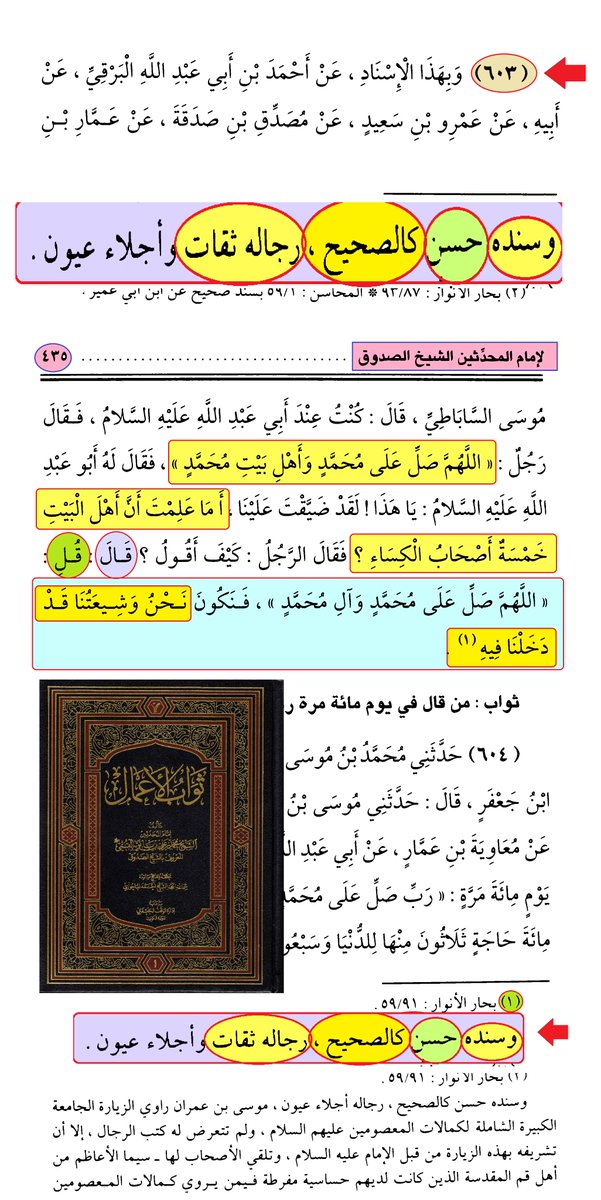 (٦٠٣) وَبِهَذَا الْإِسْنَادِ ، عَنْ أَحْمَدَ بْنِ أَبِي عَبْدِ اللَّهِ الْبَرْقِيِّ ، عَنْ
أَبِيهِ ، عَنْ عَمْرِو بْنِ سَعِيدٍ ، عَنْ مُصَدِّقِ بْنِ صَدَقَةَ ، عَنْ عَـمَّارِ بْـنِ
وسنده حسن كالصحيح ، رجاله ثقات وأجلاء عيون .
(٢) بحار الأنوار : ٩٣/٨٧ * المحاسن : ٥٩/١ بسند صحيح عن ابن أبي عمير .
لإمام المحدّثين الشيخ الصدوق ..................................... ٤٣٥
مُوسَى السَّابَاطِيِّ ، قَالَ : كُنْتُ عِنْدَ أَبِي عَبْدِ اللَّهِ عَلَيْهِ السَّلامُ ، فَـقَالَ
رَجُلٌ : « اللَّهُمَّ صَلِّ عَلَى مُحَمَّدٍ وَأَهْلِ بَيْتِ مُحَمَّدٍ » ، فَقَالَ لَهُ أَبُو عَبْدِ
اللَّهِ عَلَيْهِ السَّلَامُ : يَا هَذَا ! لَقَدْ ضَيَّقْتَ عَلَيْنَا ، أَ مَا عَلِمْتَ أَنَّ أَهْلَ الْبَيْتِ
خَمْسَةٌ أَصْحَابُ الْكِسَاءِ ؟ فَقَالَ الرَّجُلُ : كَيْفَ أَقُولُ ؟ قَـالَ : قُلِ :
« اللَّهُمَّ صَلِّ عَلَى مُحَمَّدٍ وَآلِ مُحَمَّدٍ » ، فَـنَكُونَ نَـحْنُ وَشِـيعَتُنَا قَـدْ
دَخَلْنَا فِيهِ (١) .
ثواب : من قال في يوم مائة مرة ر
(٦٠٤) حَدَّثَنِي مُحَمَّدُ بْنُ مُوسَى
ابْنُ جَعْفَرٍ ، قَالَ : حَدَّثَنِي مُوسَى بْنُ
عَنْ مُعَاوِيَةَ بْنِ عَمَّارٍ ، عَنْ أَبِي عَبْدِ اللَّ
يَوْمٍ مِائَةَ مَرَّةٍ : « رَبِّ صَلِّ عَلَى مُحَمَّدٍ
مِائَةَ حَاجَةٍ ثَلَاثُونَ مِنْهَا لِلدُّنْيَا وَسَبْعُو
ثواب الأعمال
١
(١) بحار الأنوار : ٥٩/٩١ .
وسنده حسن كالصحيح ، رجاله ثقات وأجلاء عيون .
(١) بحار الأنوار : ٥٩/٩١ .
وسنده حسن كالصحيح ، رجاله أجلاء عيون ، موسى بن عمران راوي الزيارة الجامعة
الكبيرة الشاملة لكمالات المعصومين عليهم السلام ، ولم تتعرض له كتب الرجال ، إلا أن
تشريفه بهذه الزيارة من قبل الإمام عليه السلام ، وتلقي الأصحاب لها ـ سيما الأعاظم من
أهل قم المقدسة الذين كانت لديهم حساسية مفرطة فيمن يروي كـمالات المـعصومين